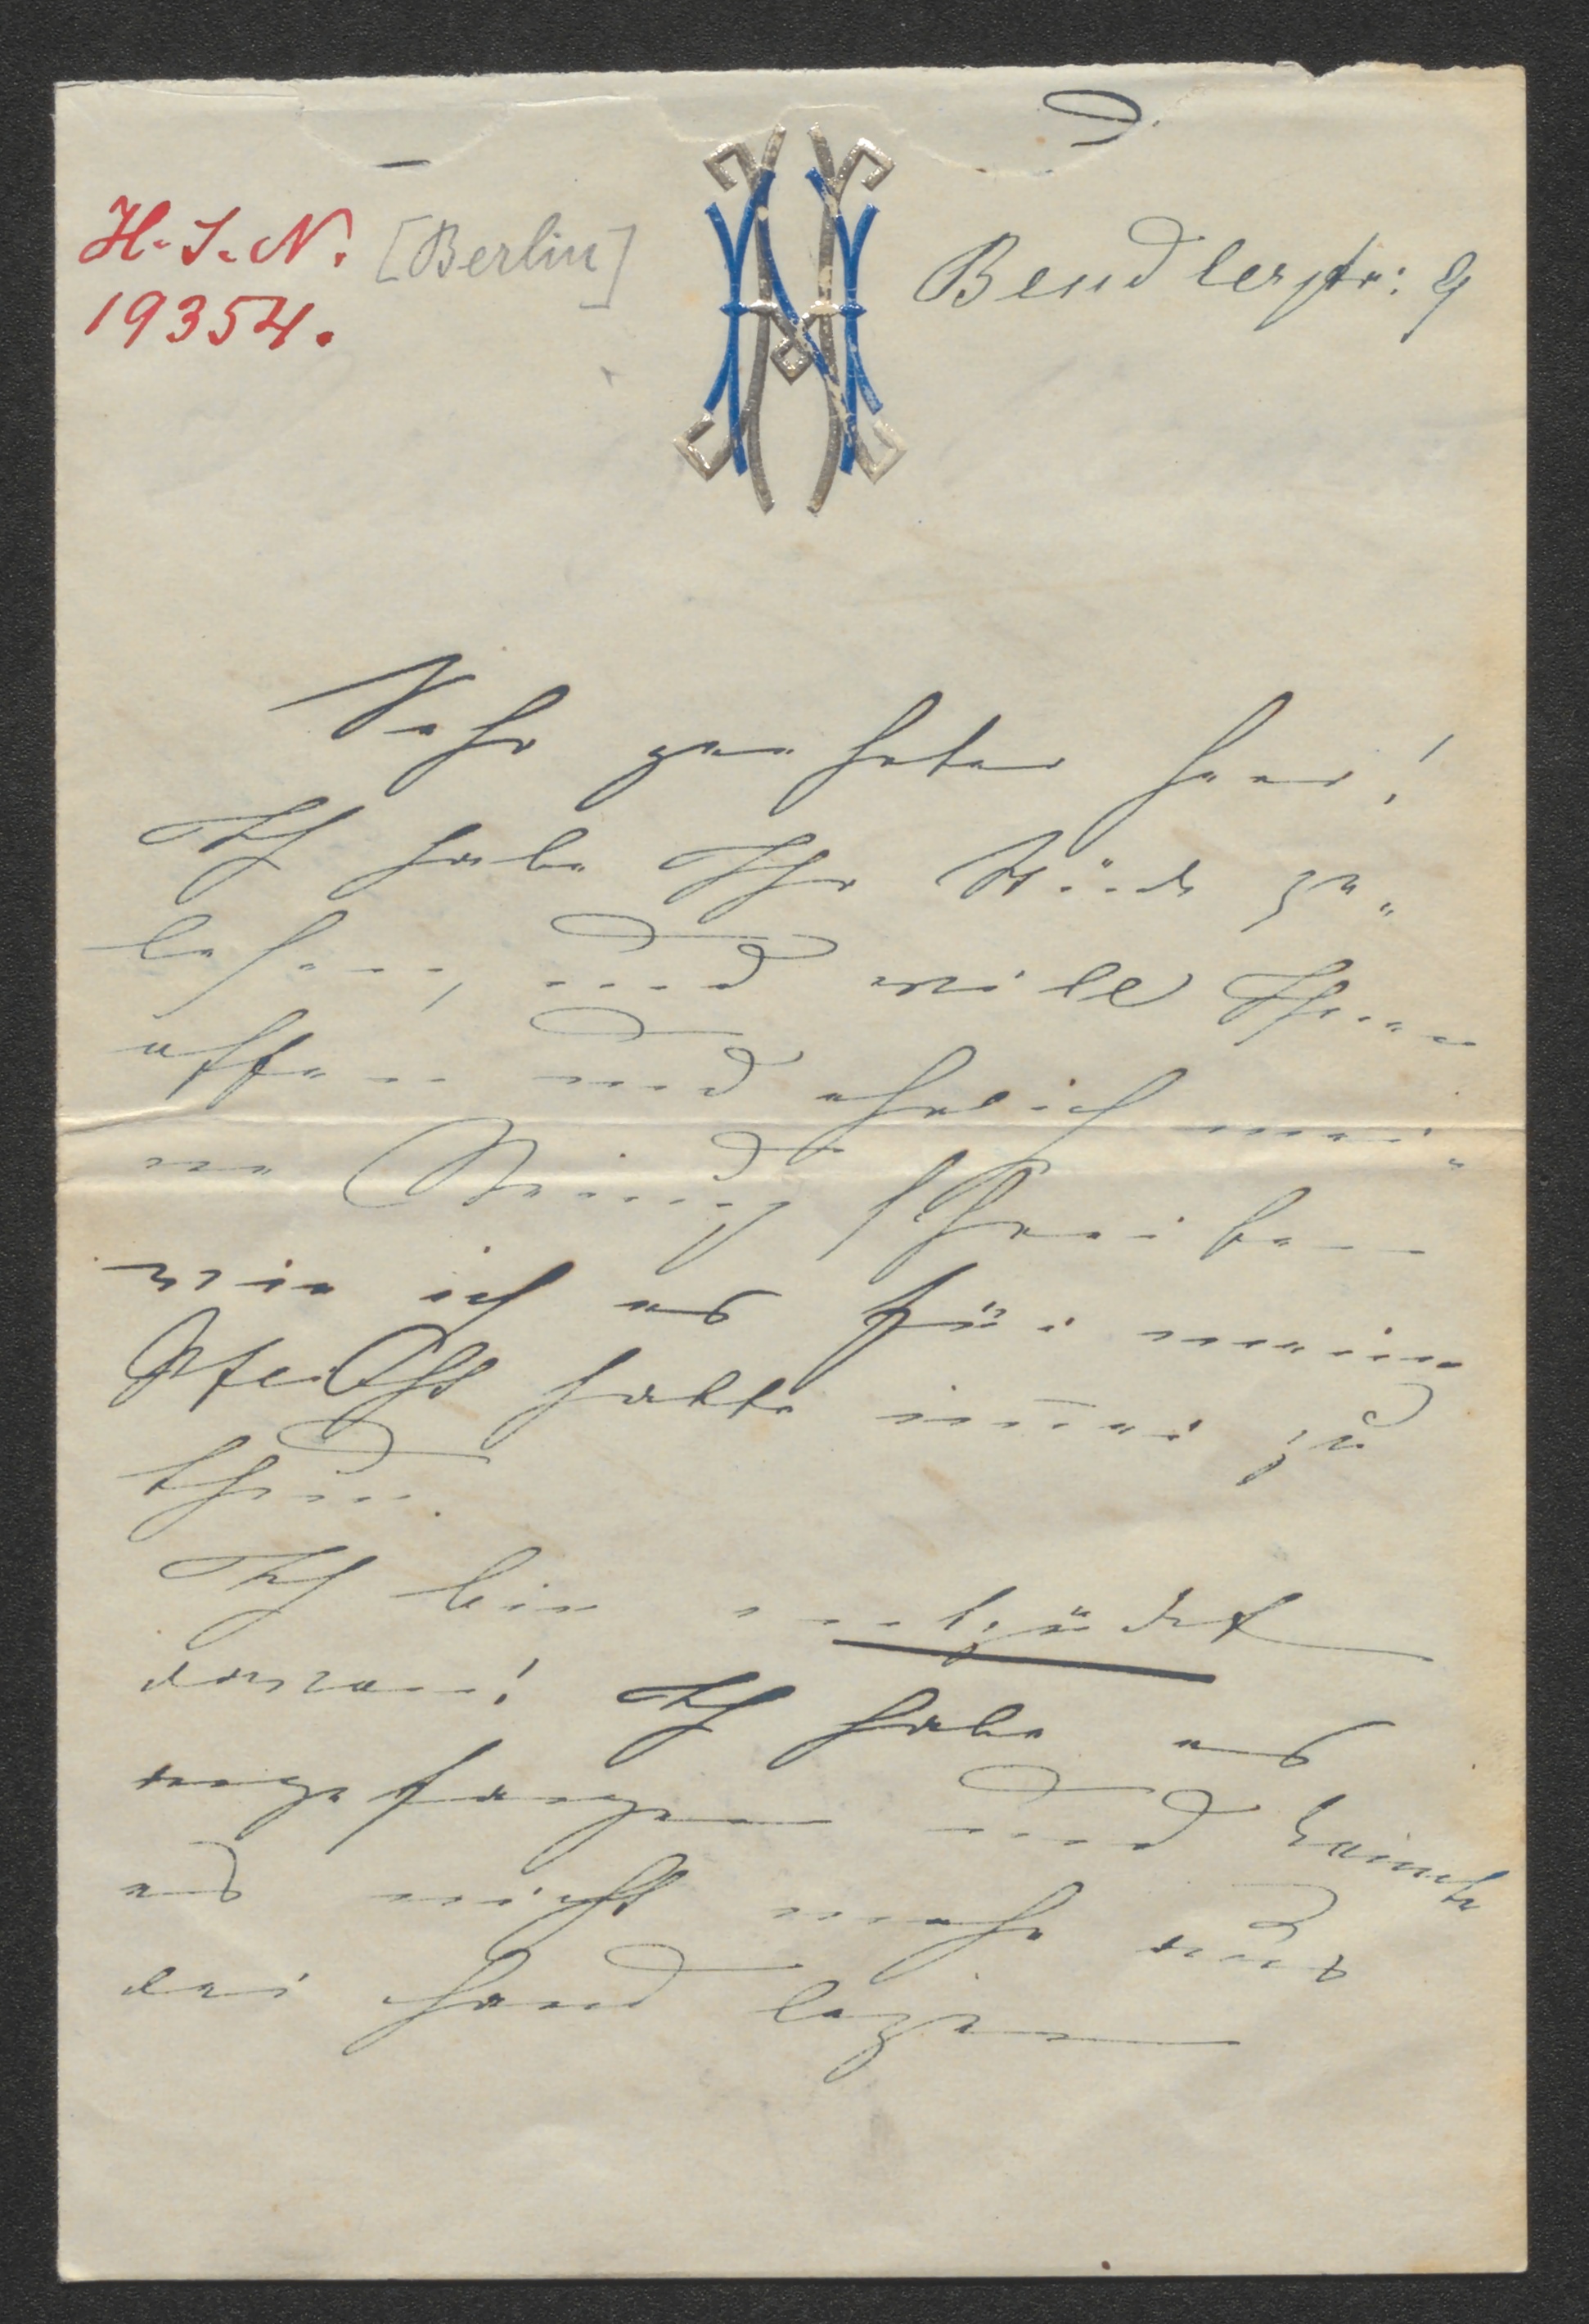 H. I. N. [Berlin] Bendlerstr: 9
19354.
Sehr geehrter Herr!
Ich habe Ihr Stück ge-
lesen, und will Ihnen
offen und ehrlich mei-
ne Meinung schreiben
wie ich es für meine
Pflicht halte immer zu
thun.
Ich bin entzückt
davon! Ich habe es
angefangen und konnte
es nicht mehr aus
der Hand legen